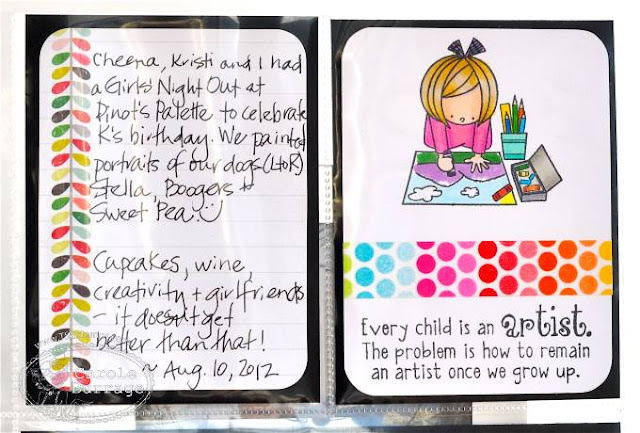 Cheena, Kristi and I had
a Girls' Night Out at
Pinot's Palette to celebrate
K's birthday. We painted
portraits of our dogs (L to R)
Stella, Boogers +
Sweet Pea.
Cupcakes, wine,
creativity + girlfriends
- it doesn't get
better than that!
~ Aug. 10, 2012
Carole Burrage
Every child is an artist.
The problem is how to remain
an artist once we grow up.